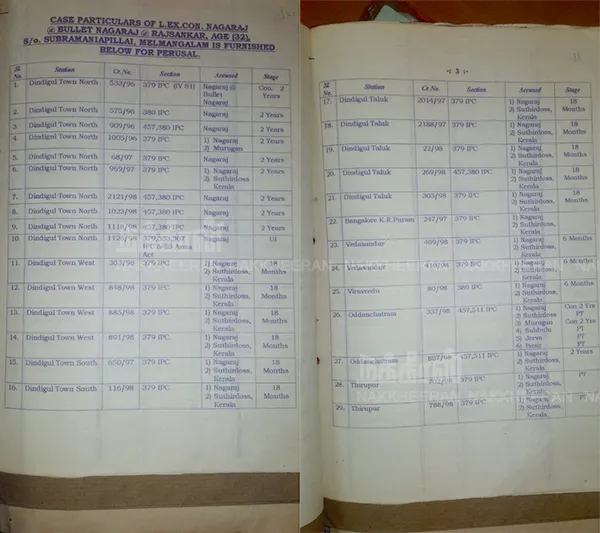 CASE PARTICULARS OF L.EX.CON. NAGARAJ
@ BULLET NAGARAJ @ RAJSANKAR, AGE (32),
S/o. SUBRAMANIAPILLAI, MELMANGALAM IS FURNISHED
BELOW FOR PERUSAL.
Sl. No. Station Cr.No. Section Accused Stage
1. Dindigul Town North 533/96 379 IPC Nagaraj @ Bullet Nagaraj Con. 2 Years
2. Dindigul Town North 575/96 380 IPC Nagaraj 2 Years
3. Dindigul Town North 909/96 457,380 IPC Nagaraj 2 Years
4. Dindigul Town North 1005/96 379 IPC 1) Nagaraj 2) Murugan 2 Years
5. Dindigul Town North 68/97 379 IPC Nagaraj 2 Years
6. Dindigul Town North 969/97 379 IPC 1) Nagaraj 2) Suthirdoss Kerala 2 Years
7. Dindigul Town North 2121/98 457,380 IPC Nagaraj 2 Years
8. Dindigul Town North 1023/98 457,380 IPC Nagaraj 2 Years
9. Dindigul Town North 1118/98 457,380 IPC Nagaraj 2 Years
10. Dindigul Town North Nagaraj UI
IPC
Act
11. Dindigul Town West 303/98 379 IPC 1) Nagaraj 2) Suthirdoss, Kerala 18 Months
12. Dindigul Town West 848/98 379 IPC 1) Nagaraj 2) Suthirdoss, Kerala 18 Months
13. Dindigul Town West 885/98 379 IPC 1) Nagaraj 2) Suthirdoss, Kerala 18 Months
14. Dindigul Town West 891/98 379 IPC 1) Nagaraj 2) Suthirdoss, Kerala 18 Months
15. Dindigul Town South 650/97 379 IPC 1) Nagaraj 2) Suthirdoss, Kerala 18 Months
16. Dindigul Town South 116/98 379 IPC 1) Nagaraj 2) Suthirdoss, Kerala 18 Months
-: 3 :-
Sl. No. Station Cr.No. Section Accused Stage
17. Dindigul Taluk 2014/97 379 IPC 1) Nagaraj 2) Suthirdoss, Kerala 18 Months
18. Dindigul Taluk 2188/97 379 IPC 1) Nagaraj 2) Suthirdoss, Kerala 18 Months
19. Dindigul Taluk 22/98 379 IPC 1) Nagaraj 2) Suthirdoss, Kerala 18 Months
20. Dindigul Taluk 269/98 457,380 IPC 1) Nagaraj 2) Suthirdoss, Kerala 18 Months
21. Dindigul Taluk 303/98 379 IPC 1) Nagaraj 2) Suthirdoss, Kerala 18 Months
22. Bangalore K.R.Puram 247/97 379 IPC 1) Nagaraj 2) Suthirdoss, Kerala
23. Vedasandur 409/98 379 IPC 1) Nagaraj 2) Suthirdoss, Kerala 6 Months
24. Vedasandur 410/98 379 IPC 1) Nagaraj 2) Suthirdoss, Kerala 6 Months
25. 80/98 380 IPC 1) Nagaraj 2) Suthirdoss, Kerala 6 Months
26. Oddanchatram 337/98 457,511 IPC 1) Nagaraj 2) Suthirdoss 3) Murugan 4) 5) 6) Con 2 Yrs PT Con 2 Yrs PT PT PT
27. Oddanchatram 457,511 IPC 1) Nagaraj 2) Suthirdoss, Kerala 2 Years
28. Thirupur 379 IPC 1) Nagaraj 2) Suthirdoss, Kerala PT
29. Thirupur 788/98 379 IPC 1) Nagaraj 2) Suthirdoss, Kerala
நக்கீரன்
NAKKHEERAN